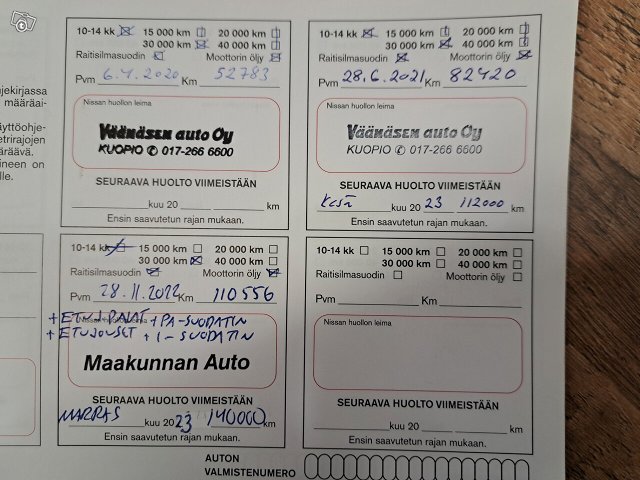 jekirjassa
määräai-
yttöohje-
etrirajojen
räävä.
ineen on
lle.
10-14 kk 15 000 km 20 000 km
30 000 km 40 000 km
Raitisilmasuodin Moottorin öljy
Pvm 6.4.2020 Km 52783
Nissan huollon leima
Väänäsen auto Oy
KUOPIO ✆ 017-266 6600
SEURAAVA HUOLTO VIIMEISTÄÄN
kuu 20 km
Ensin saavutetun rajan mukaan.
10-14 kk 15 000 km 20 000 km
30 000 km 40 000 km
Raitisilmasuodin Moottorin öljy
Pvm 28.6.2021 Km 82420
Nissan huollon leima
Väänäsen auto Oy
KUOPIO ✆ 017-266 6600
SEURAAVA HUOLTO VIIMEISTÄÄN
Kesä kuu 20 23 112000 km
Ensin saavutetun rajan mukaan.
10-14 kk 15 000 km 20 000 km
30 000 km 40 000 km
Raitisilmasuodin Moottorin öljy
Pvm 28.11.2022 Km 110556
+ ETUJPALAT + PA-SUODATIN
Nissan huollon leima
+ ETUJOUSET + I-SUODATIN
Maakunnan Auto
SEURAAVA HUOLTO VIIMEISTÄÄN
MARRAS kuu 20 23 140000 km
Ensin saavutetun rajan mukaan.
10-14 kk 15 000 km 20 000 km
30 000 km 40 000 km
Raitisilmasuodin Moottorin öljy
Pvm Km
Nissan huollon leima
SEURAAVA HUOLTO VIIMEISTÄÄN
kuu 20 km
Ensin saavutetun rajan mukaan.
AUTON
VALMISTENUMERO